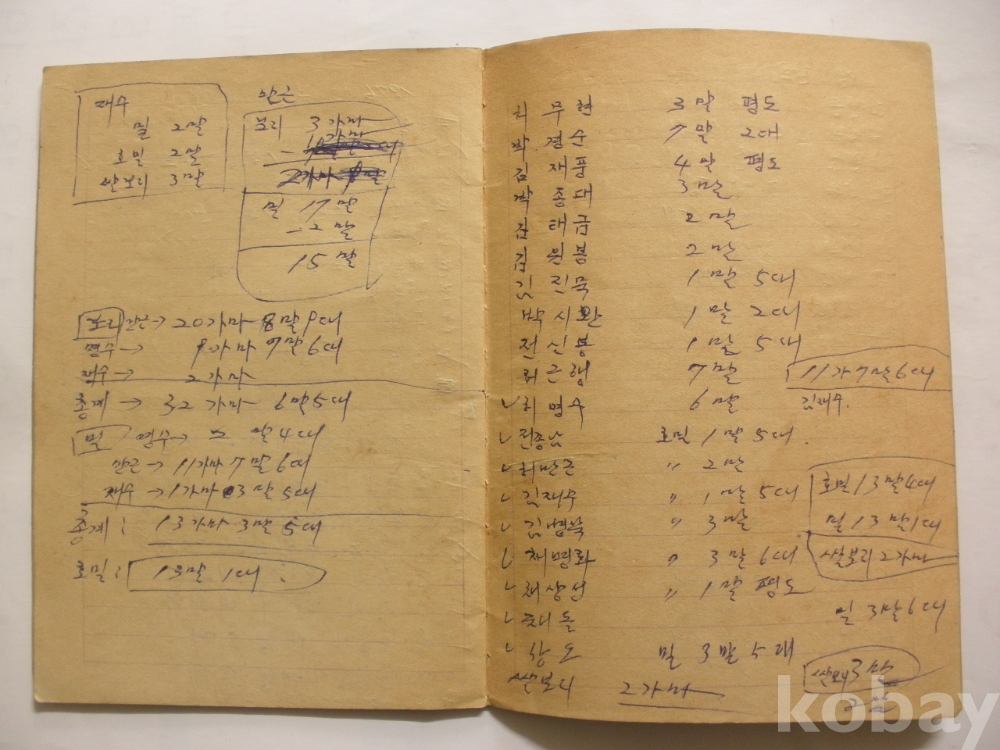 재수
밀 2말
호밀 2말
쌀보리 3말
만근
보리 3가마
가마
2가마
밀 17말
-2말
15말
보리 만근→ 20가마 8말9대
면수→ 9가마 7말6대
재수→ 2가마
총계→ 32가마 6말5대
밀 면수→ 2말4대
만근→ 11가마7말6대
재수→1가마 3말5대
총계: 13가마 3말5대
호밀: 13말 1대
최무현 3말 평도
박경순 7말 2대
김재풍 4말 평도
박종대 3말
김태금 2말
김원봄 2말
김진묵 1말 5대
박시환 1말 2대
전신봉 1말 5대
최근행 7말
11가7말6대
최명수 6말
김재수.
전종남 호밀 1말 5대
최만근 〃 2말
김재수 〃 1말 5대
호밀13말4대
〃 3말
밀13말1대
채병화 〃 3말6대
쌀보리2가마
채상선 〃 1말 평도
돌
밀3말6대
상도 밀 3말5대
쌀보리 2가마
쌀보리3말
2말
kobay